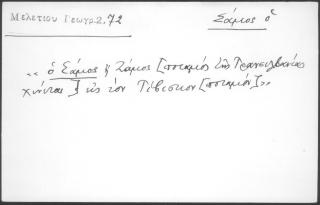 Μελετίου Γεωγρ. 2,72
Σάμος ὁ
«ὁ Σάμος ἢ Ζάμος [ποταμὸς τῆς Τρανσυλβανίας
χύνεται] εἰς τὸν Τίβισκον [ποταμόν]»